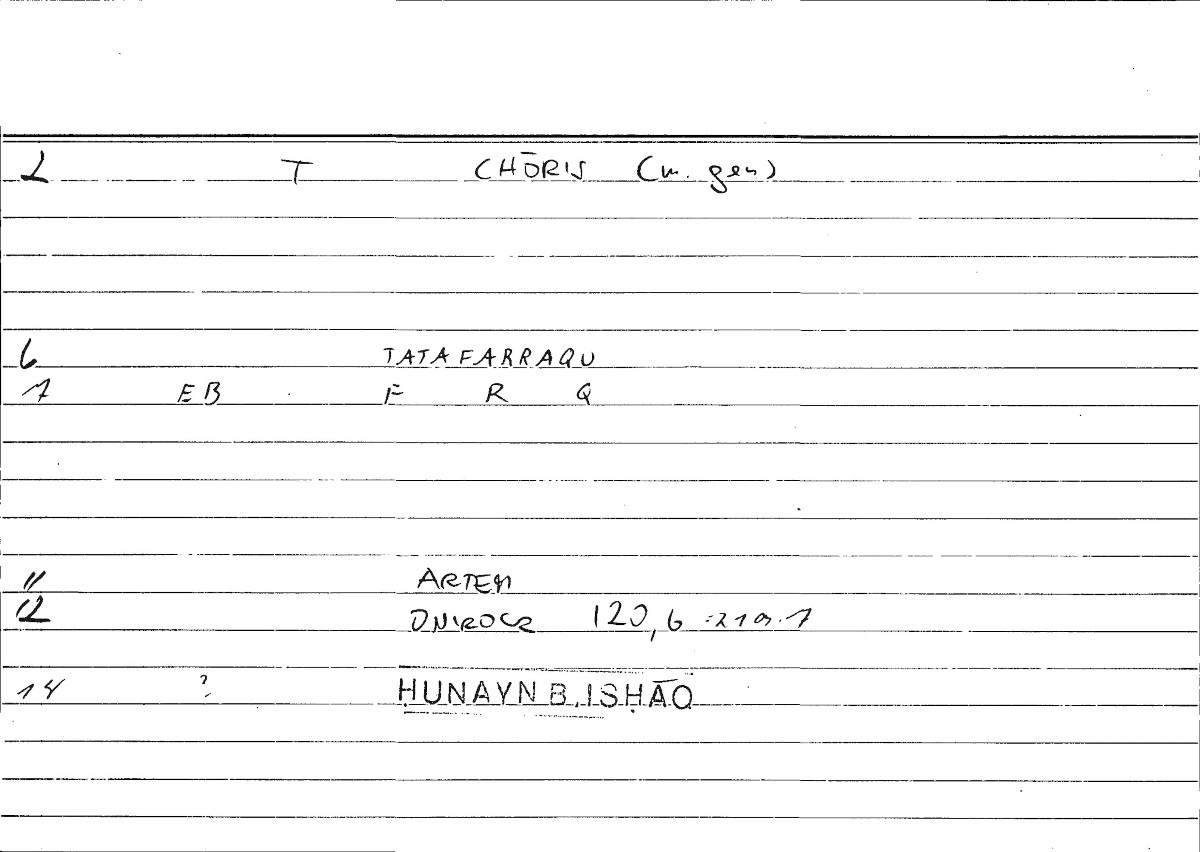 2 T CHŌRIS (m. gen)
6 TATAFARRAQU
7 EB F R Q
11 ARTEM
12 ONIROCR 120,6 = 219.7
14 ? ḤUNAYN B. ISḤĀQ